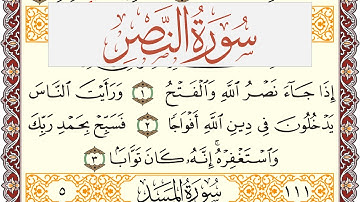 سُورَةُ النَّصْرِ
إِذَا جَآءَ نَصْرُ ٱللَّهِ وَٱلْفَتْحُ ١ وَرَأَيْتَ ٱلنَّاسَ
يَدْخُلُونَ فِى دِينِ ٱللَّهِ أَفْوَاجًا ٢ فَسَبِّحْ بِحَمْدِ رَبِّكَ
وَٱسْتَغْفِرْهُ ۚ إِنَّهُۥ كَانَ تَوَّابًۢا ٣
١١١ سُورَةُ المَسَدِ ٥